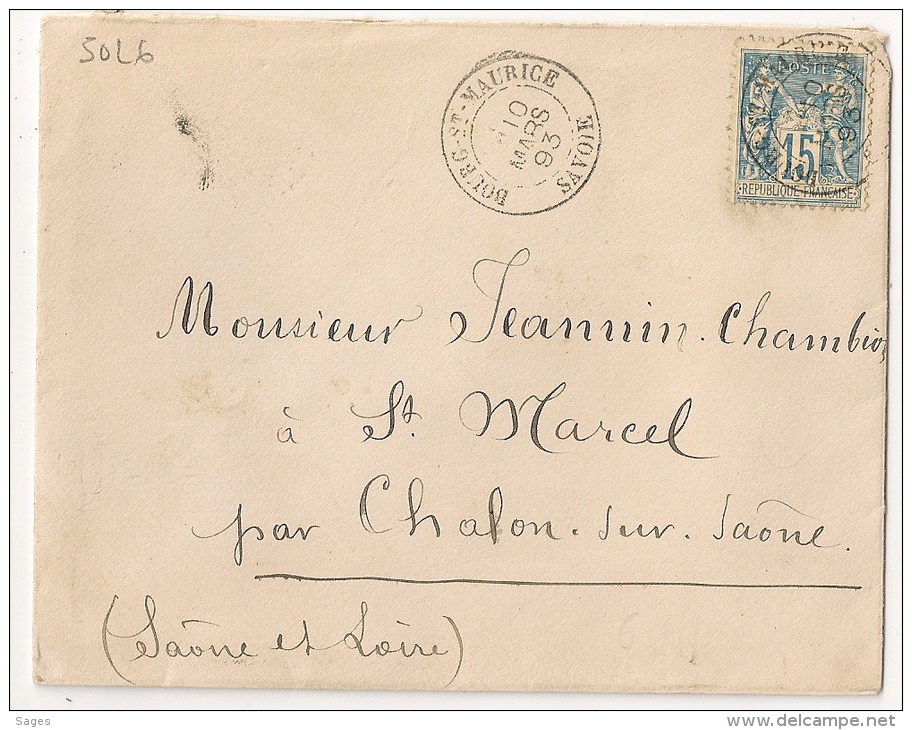 50L6
BOURG-ST-MAURICE
10
MARS
93
SAVOIE
POSTE
15
REPUBLIQUE FRANÇAISE
Monsieur Jeannin. Chambio
à St. Marcel
par Chalon. sur. Saône.
(Saône et Loire)
Sages
www.delcampe.net